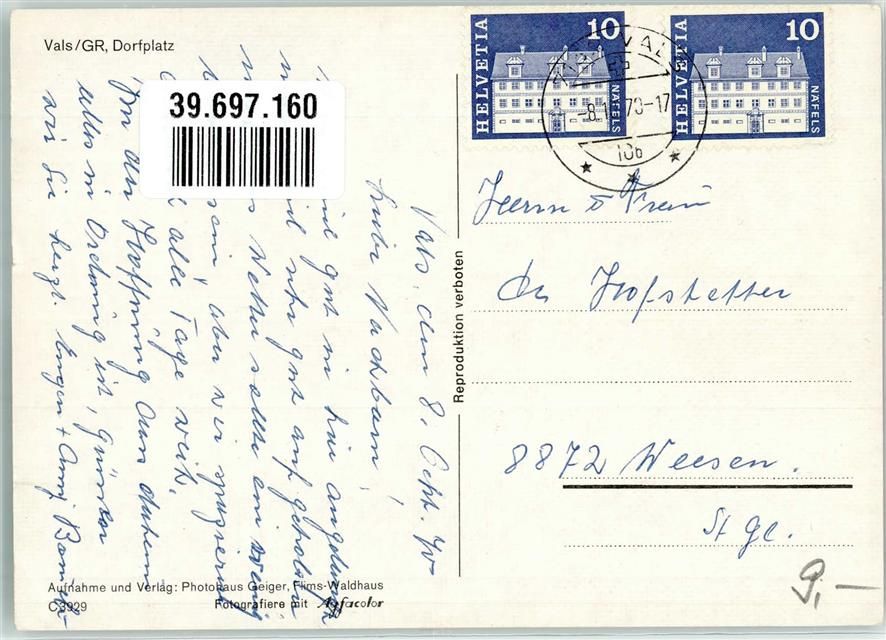 Vals/GR, Dorfplatz
39.697.160
HELVETIA 10 NÄFELS
HELVETIA 10 NÄFELS
VALS
-8.1 70-17
Vals, den 8. Sept. 70
Liebe Nachbarn!
sind gut in hier
gut aufgehoben
Wetter sollte ein wenig
sein aber wir spazieren
alle Tage weit.
In der Hoffnung dass daheim
alles in Ordnung ist, grüssen
wir Sie herzl. Eugen + Anny
Reproduktion verboten
Herrn u Frau
Hofstetter
8872 Weesen.
St. Gl.
9,—
Aufnahme und Verlag: Photohaus Geiger, Flims-Waldhaus
C 3929
Fotografiere mit Agfacolor